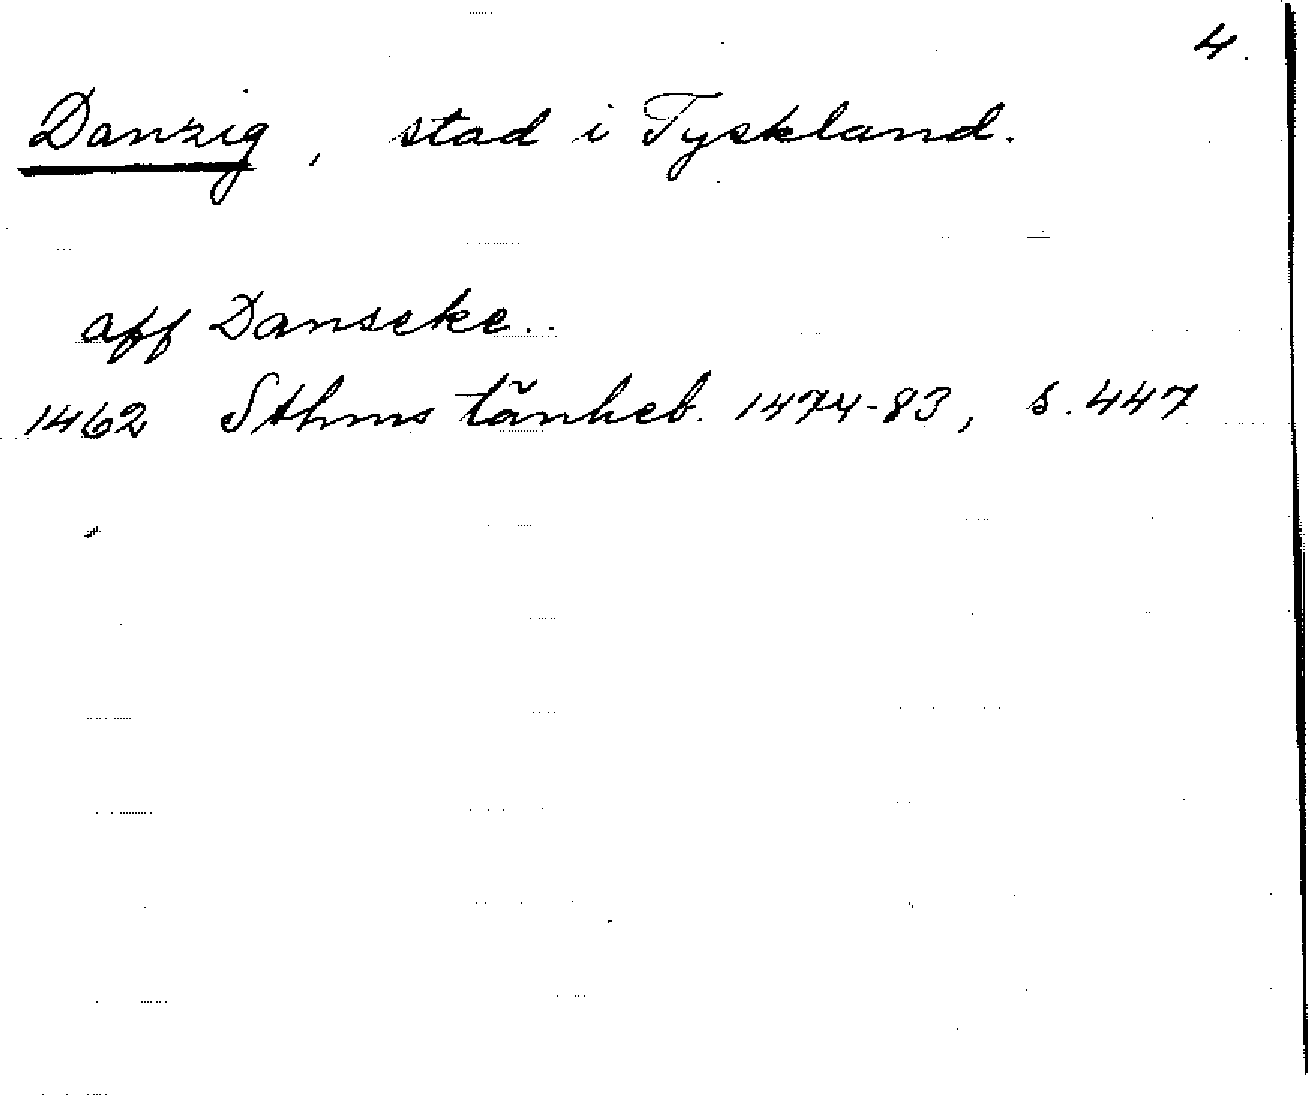 4.
Danzig, stad i Tyskland.
aff Danseke..
1462 Sthms tänkeb. 1474-83, s. 447